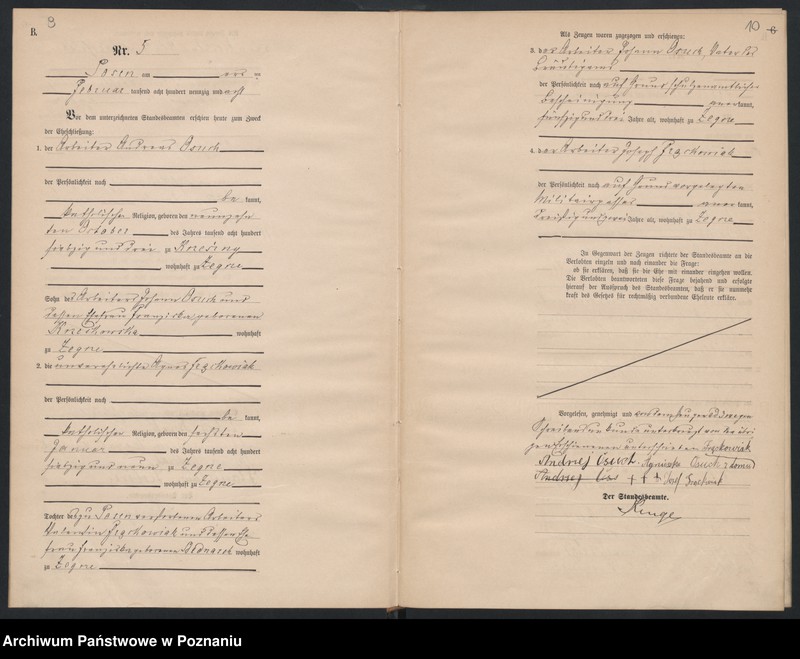 9
B.
Nr. 5
Posen am
Februar tausend acht hundert neunzig und acht
Vor dem unterzeichneten Standesbeamten erschien heute zum Zweck
der Eheschließung:
1. der Arbeiter Andreas Osuch
der Persönlichkeit nach
be kannt,
katholischer Religion, geboren den neunzehn
ten October des Jahres tausend acht hundert
siebzig und drei zu
wohnhaft zu Zegrze
Sohn des Arbeiters Johann Osuch und
dessen Ehefrau Franziska geborenen
wohnhaft
zu Zegrze
2. die unverehelichte Agnes Frąckowiak
der Persönlichkeit nach
be kannt,
katholischer Religion, geboren den sechsten
Januar des Jahres tausend acht hundert
siebzig und neun zu Zegrze
wohnhaft zu Zegrze
Tochter des zu Posen verstorbenen Arbeiters
Valentin Frąckowiak und dessen Ehe
frau Franziska geborenen Bednarek wohnhaft
zu Zegrze
10
6
Als Zeugen waren zugezogen und erschienen:
3. der Arbeiter Johann Osuch, Vater des
Bräutigams
der Persönlichkeit nach auf Grund
Bescheinigung aner kannt,
fünfzig und drei Jahre alt, wohnhaft zu Zegrze
4. der Arbeiter Joseph Frąckowiak
der Persönlichkeit nach auf Grund vorgelegten
Militairpasses aner kannt,
dreißig und zwei Jahre alt, wohnhaft zu Zegrze
In Gegenwart der Zeugen richtete der Standesbeamte an die
Verlobten einzeln und nach einander die Frage:
ob sie erklären, daß sie die Ehe mit einander eingehen wollen.
Die Verlobten beantworteten diese Frage bejahend und erfolgte
hierauf der Ausspruch des Standesbeamten, daß er sie nunmehr
kraft des Gesetzes für rechtmäßig verbundene Eheleute erkläre.
Vorgelesen, genehmigt und von dem Zeugen zu 3 wegen
Schreibensunkunde unterkreuzt von den übri
gen Erschienenen unterschrieben Frąckowiak
Andrzej Osuch Agnieszka Osuch z domu
Andrzej Osu + + + Józef
Der Standesbeamte.
Archiwum Państwowe w Poznaniu